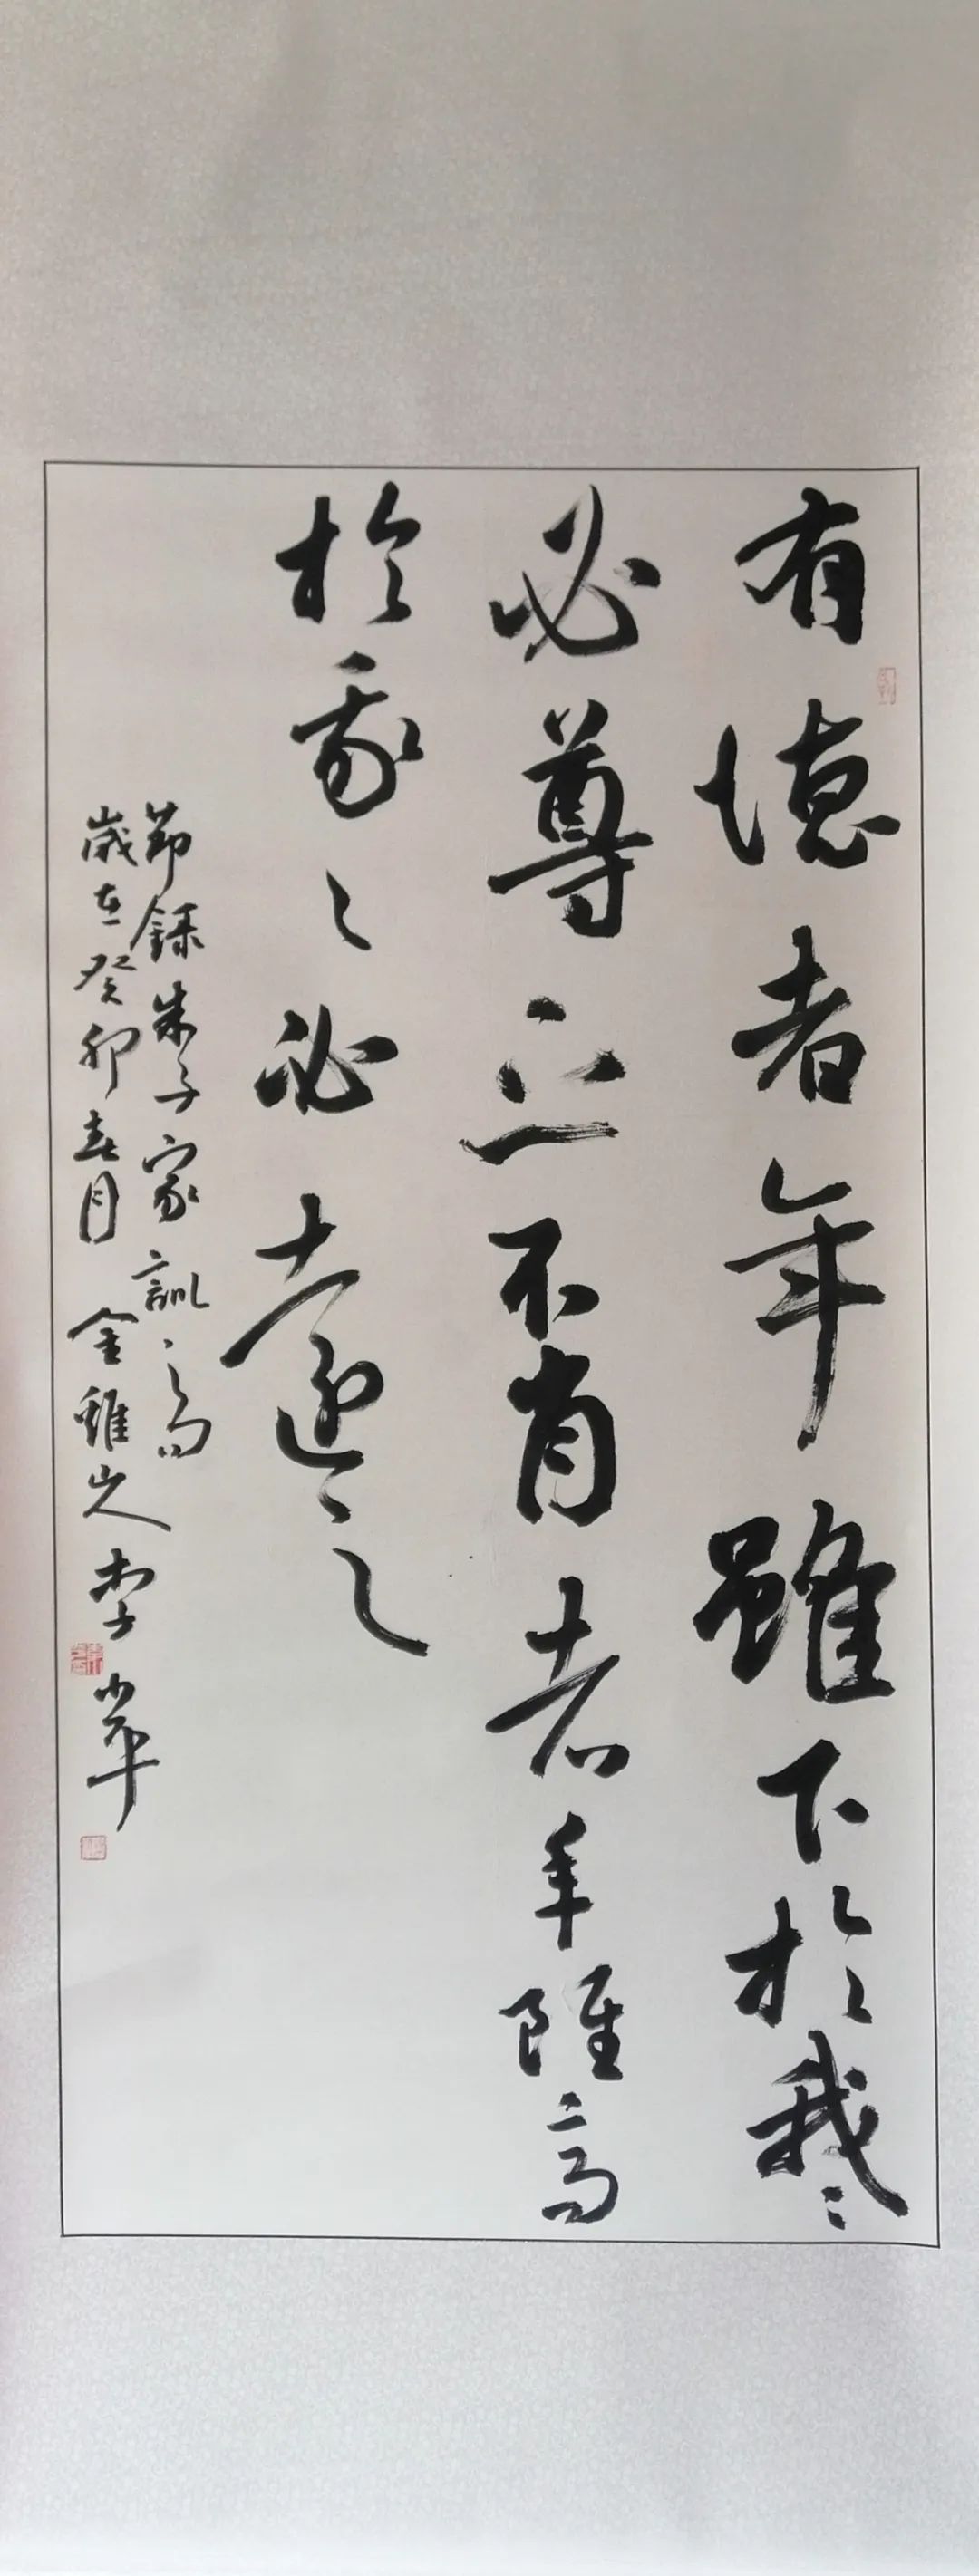 有德者年雖下於我〻
必尊之不肖者年雖高
於我〻必遠之
節錄朱子家訓之句
歲在癸卯春月 金雞山人 李半